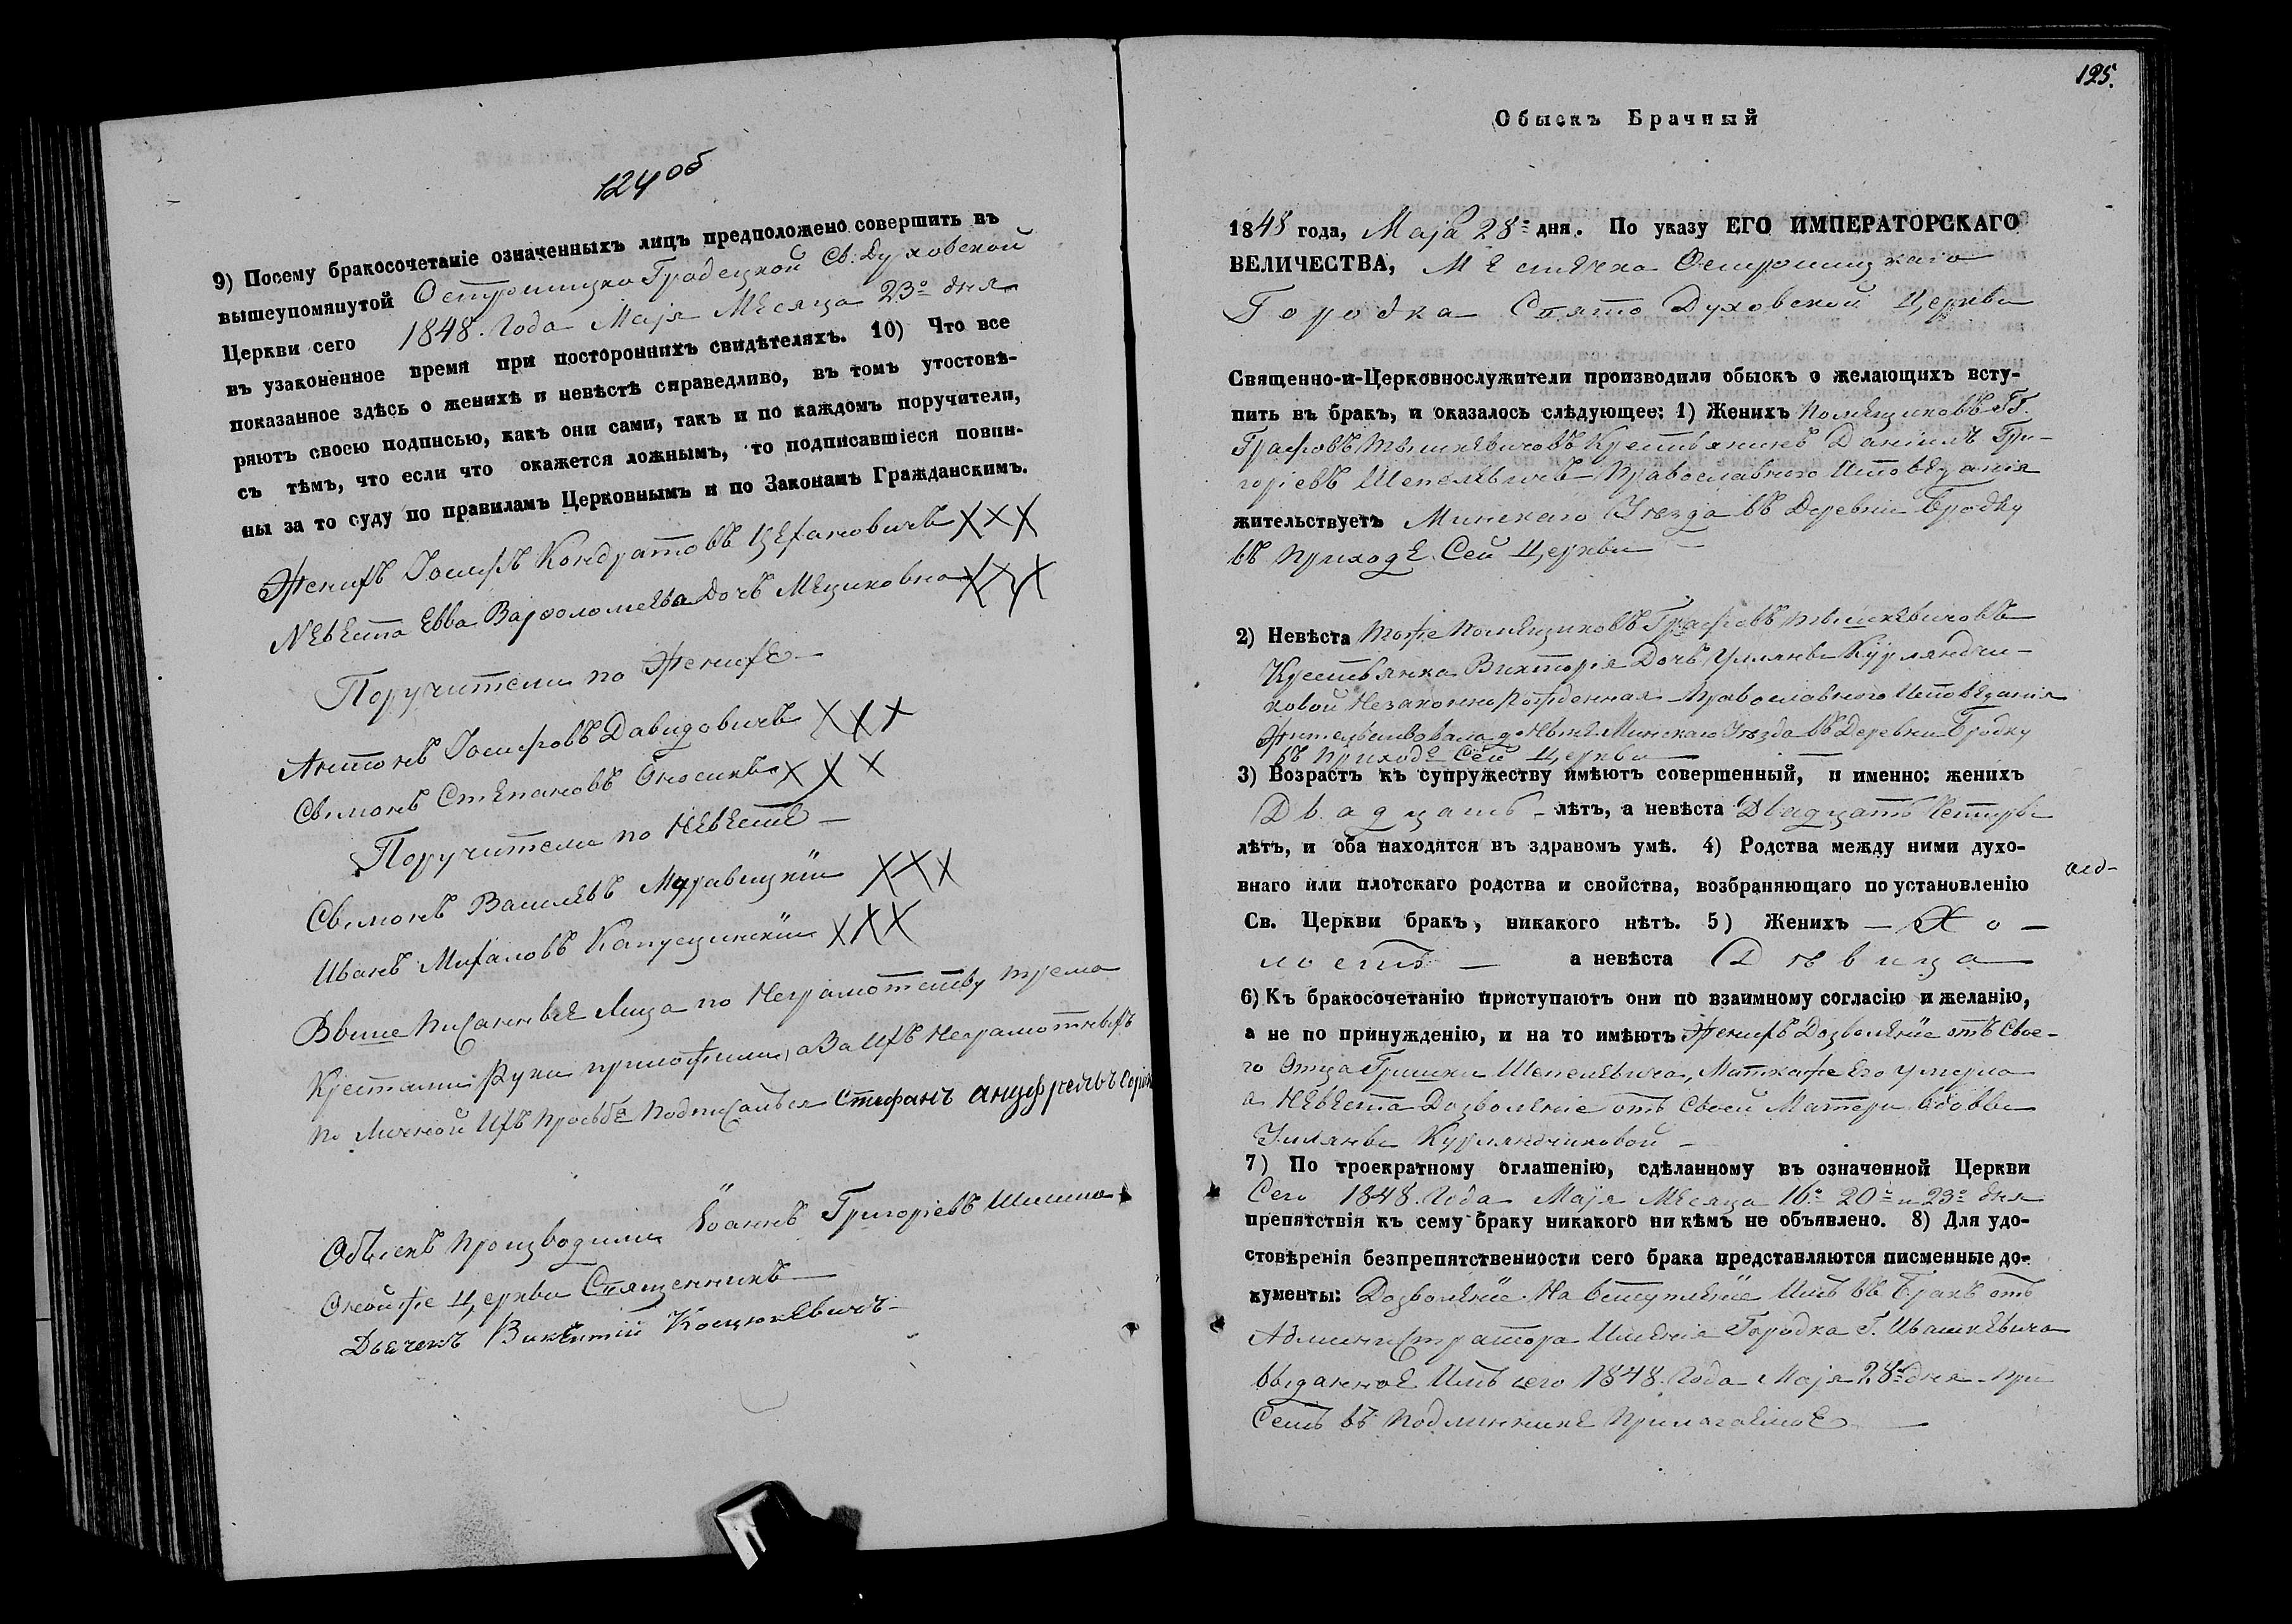 124 об
9) Посему бракосочетаніе означенныхъ лицъ предположено совершить въ
вышеупомянутой Острошицко Градецкой Св: Духовской
Церкви сего 1848. Года Маія Месяца 23º дня
въ узаконенное время при постороннихъ свидѣтеляхъ. 10) Что все
показанное здѣсь о женихѣ и невѣстѣ справедливо, въ томъ утостовѣ-
ряютъ своею подписью, какъ они сами, такъ и по каждомъ поручители,
съ тѣмъ, что если что окажется ложнымъ, то подписавшіеся повин-
ны за то суду по правиламъ Церковнымъ и по Законамъ Гражданскимъ.
Женихъ Іосифъ Кондратовъ Цехановичъ XXX
Невеста Евва Варфоломеева Дочъ Мециковна XXX
Поручители по Женихе
Антонъ Іосифовъ Давидовичъ XXX
Сымонъ Степановъ Оносикъ XXX
Поручители по Невесте
Сымонъ Васильевъ Муравицкій XXX
Иванъ Михаловъ Капусцинскій XXX
Выше Писанные Лица по Неграмотству трема
Крестами Руки приложили, а За Ихъ Неграмотныхъ
По Личной Ихъ Просьбе Подписался Стефанъ
Обыскъ Производили Іоаннъ Григоріевъ
Оной же Церкви Священникъ
Дьячекъ Викентій Косцюкевичъ
125.
Обыскъ Брачный
1848 года, Маја 28º дня. По указу ЕГО ИМПЕРАТОРСКАГО
ВЕЛИЧЕСТВА, Местечка Острошицкаго
Городка Свято Духовской Церкви
Священно-и-Церковнослужители производили обыскъ о желающихъ всту-
пить въ бракъ, и оказалось слѣдующее: 1) Женихъ Помещиковъ ГГ.
Графовъ Тышкевичовъ Крестьянинъ Даніилъ Гри-
горіевъ Шепелевичъ Православного Исповеданія
жительствуетъ Минскаго Уезда въ Деревни Бродку
въ Приходе Сей Церкви
2) Невѣста Тоже Помещиковъ Графовъ Тышкевичовъ
Крестьянка Викторія Дочъ Ульяны Курлянчи-
ковой Незаконно Рожденная Православного Исповеданія
Жительствовала до Ныне Минскаго Уезда въ Деревни Бродку
въ Приходе Сей Церкви
3) Возрастъ къ супружеству имѣютъ совершенный, и именно: женихъ
Двадцать лѣтъ, а невѣста Двадцать Четыре
лѣтъ, и оба находятся въ здравомъ умѣ. 4) Родства между ними духо-
внаго или плотскаго родства и свойства, возбраняющаго по установленію
Св. Церкви бракъ, никакого нѣтъ. 5) Женихъ — Хо —
лость — а невѣста Девица
6) Къ бракосочетанію приступаютъ они по взаимному согласію и желанію,
а не по принужденію, и на то имѣютъ Женихъ Дозволеніе отъ Свое-
го Отца Гришки Шепелевича, Матка же Его умерла
а Невеста Дозволеніе отъ Своей Матери Вдовы
Ульяны Курлянчиковой
7) По троекратному оглашенію, сдѣланному въ означенной Церкви
Сего 1848. Года Маія Месяца 16º 20º и 23º дня
препятствія къ сему браку никакого ни кѣмъ не объявлено. 8) Для удо-
стовѣренія безпрепятственности сего брака представляются писменные до-
кументы: Дозволеніе На вступленіе Имъ въ Бракъ отъ
Администратора Именія Городка Г. Ивашкевича
выданное Имъ сего 1848. Года Маія 28º дня При
Семъ въ Подлиннике Прилагаемое